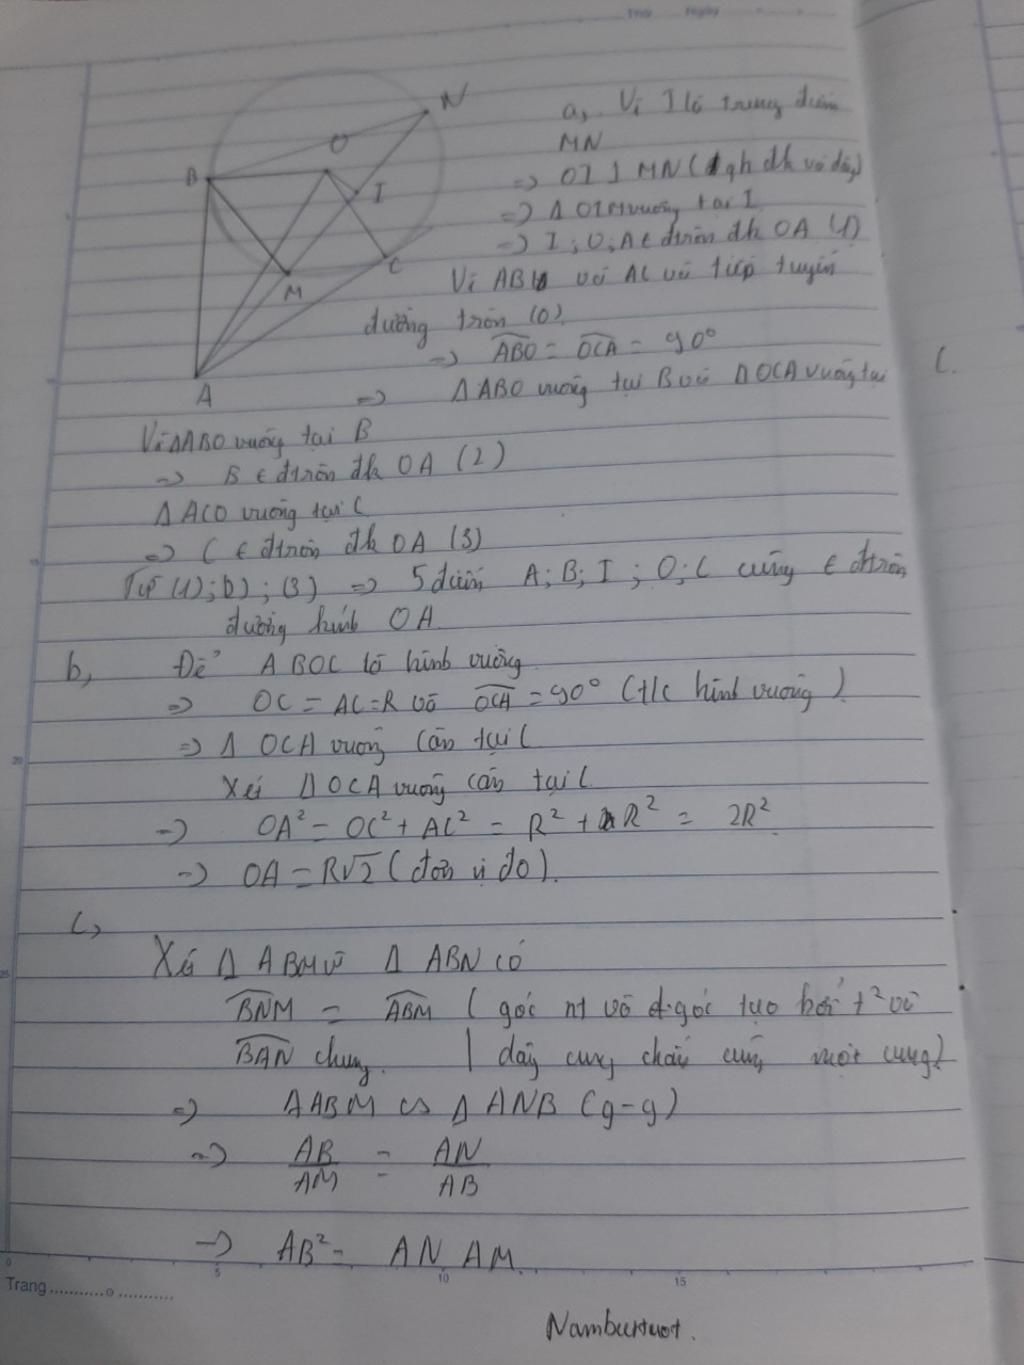 Thứ Ngày
N
O
B
I
C
M
A
a, Vì I là trung điểm
MN
=> OI ⊥ MN (qh đk và dây)
=> Δ OIM vuông tại I
=> I; O; A ∈ đtròn đk OA (1)
Vì AB và AC là tiếp tuyến
đường tròn (O)
=> ABO = OCA = 90°
=> Δ ABO vuông tại B và Δ OCA vuông tại C.
Vì Δ ABO vuông tại B
=> B ∈ đtròn đk OA (2)
Δ ACO vuông tại C
=> C ∈ đtròn đk OA (3)
Từ (1); (2); (3) => 5 điểm A; B; I; O; C cùng ∈ đtròn
đường kính OA
b, Để ABOC là hình vuông
=> OC = AC = R và OCA = 90° (t/c hình vuông)
=> Δ OCA vuông cân tại C
Xét Δ OCA vuông cân tại C
=> OA² = OC² + AC² = R² + R² = 2R²
=> OA = R√2 (đơn vị đo).
c,
Xét Δ ABM và Δ ABN có
BNM = ABM (góc nt và góc tạo bởi t² và
BAN chung. 1 dây cung chắn cùng một cung)
=> Δ ABM ∽ Δ ANB (g-g)
=> AB/AM = AN/AB
=> AB² = AN AM
0 5 10 15
20
25
Trang